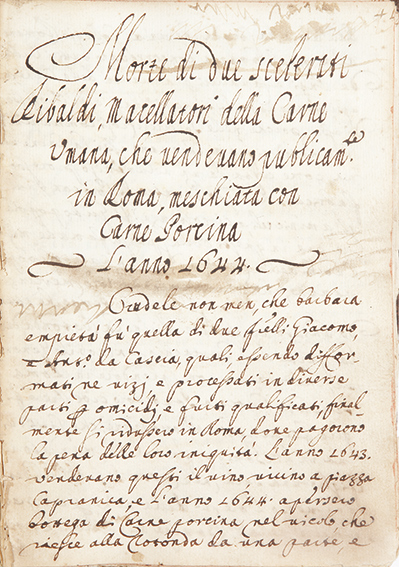 Morte di due scelerati
Ribaldi, Macellatori della Carne
Vmana, che vendevano publicam.te
in Roma, meschiata con
Carne Porcina
L'anno 1644.
Crudele non men, che barbara
empietà fù quella di due frelli Giacomo,
e Ant.o da Cascia, quali essendo diffor-
mati ne vizj, e processati in diverse
parti p omicidj, e furti qualificati, final-
mente si ridussero in Roma, dove pagorono
la pena delle loro iniquità. L'anno 1643.
vendevano questi il vino vicino a piazza
Capranica, e l'anno 1644. apersero
bottega di Carne porcina nel vicolo, che
riesce alla Rotonda da una parte, e